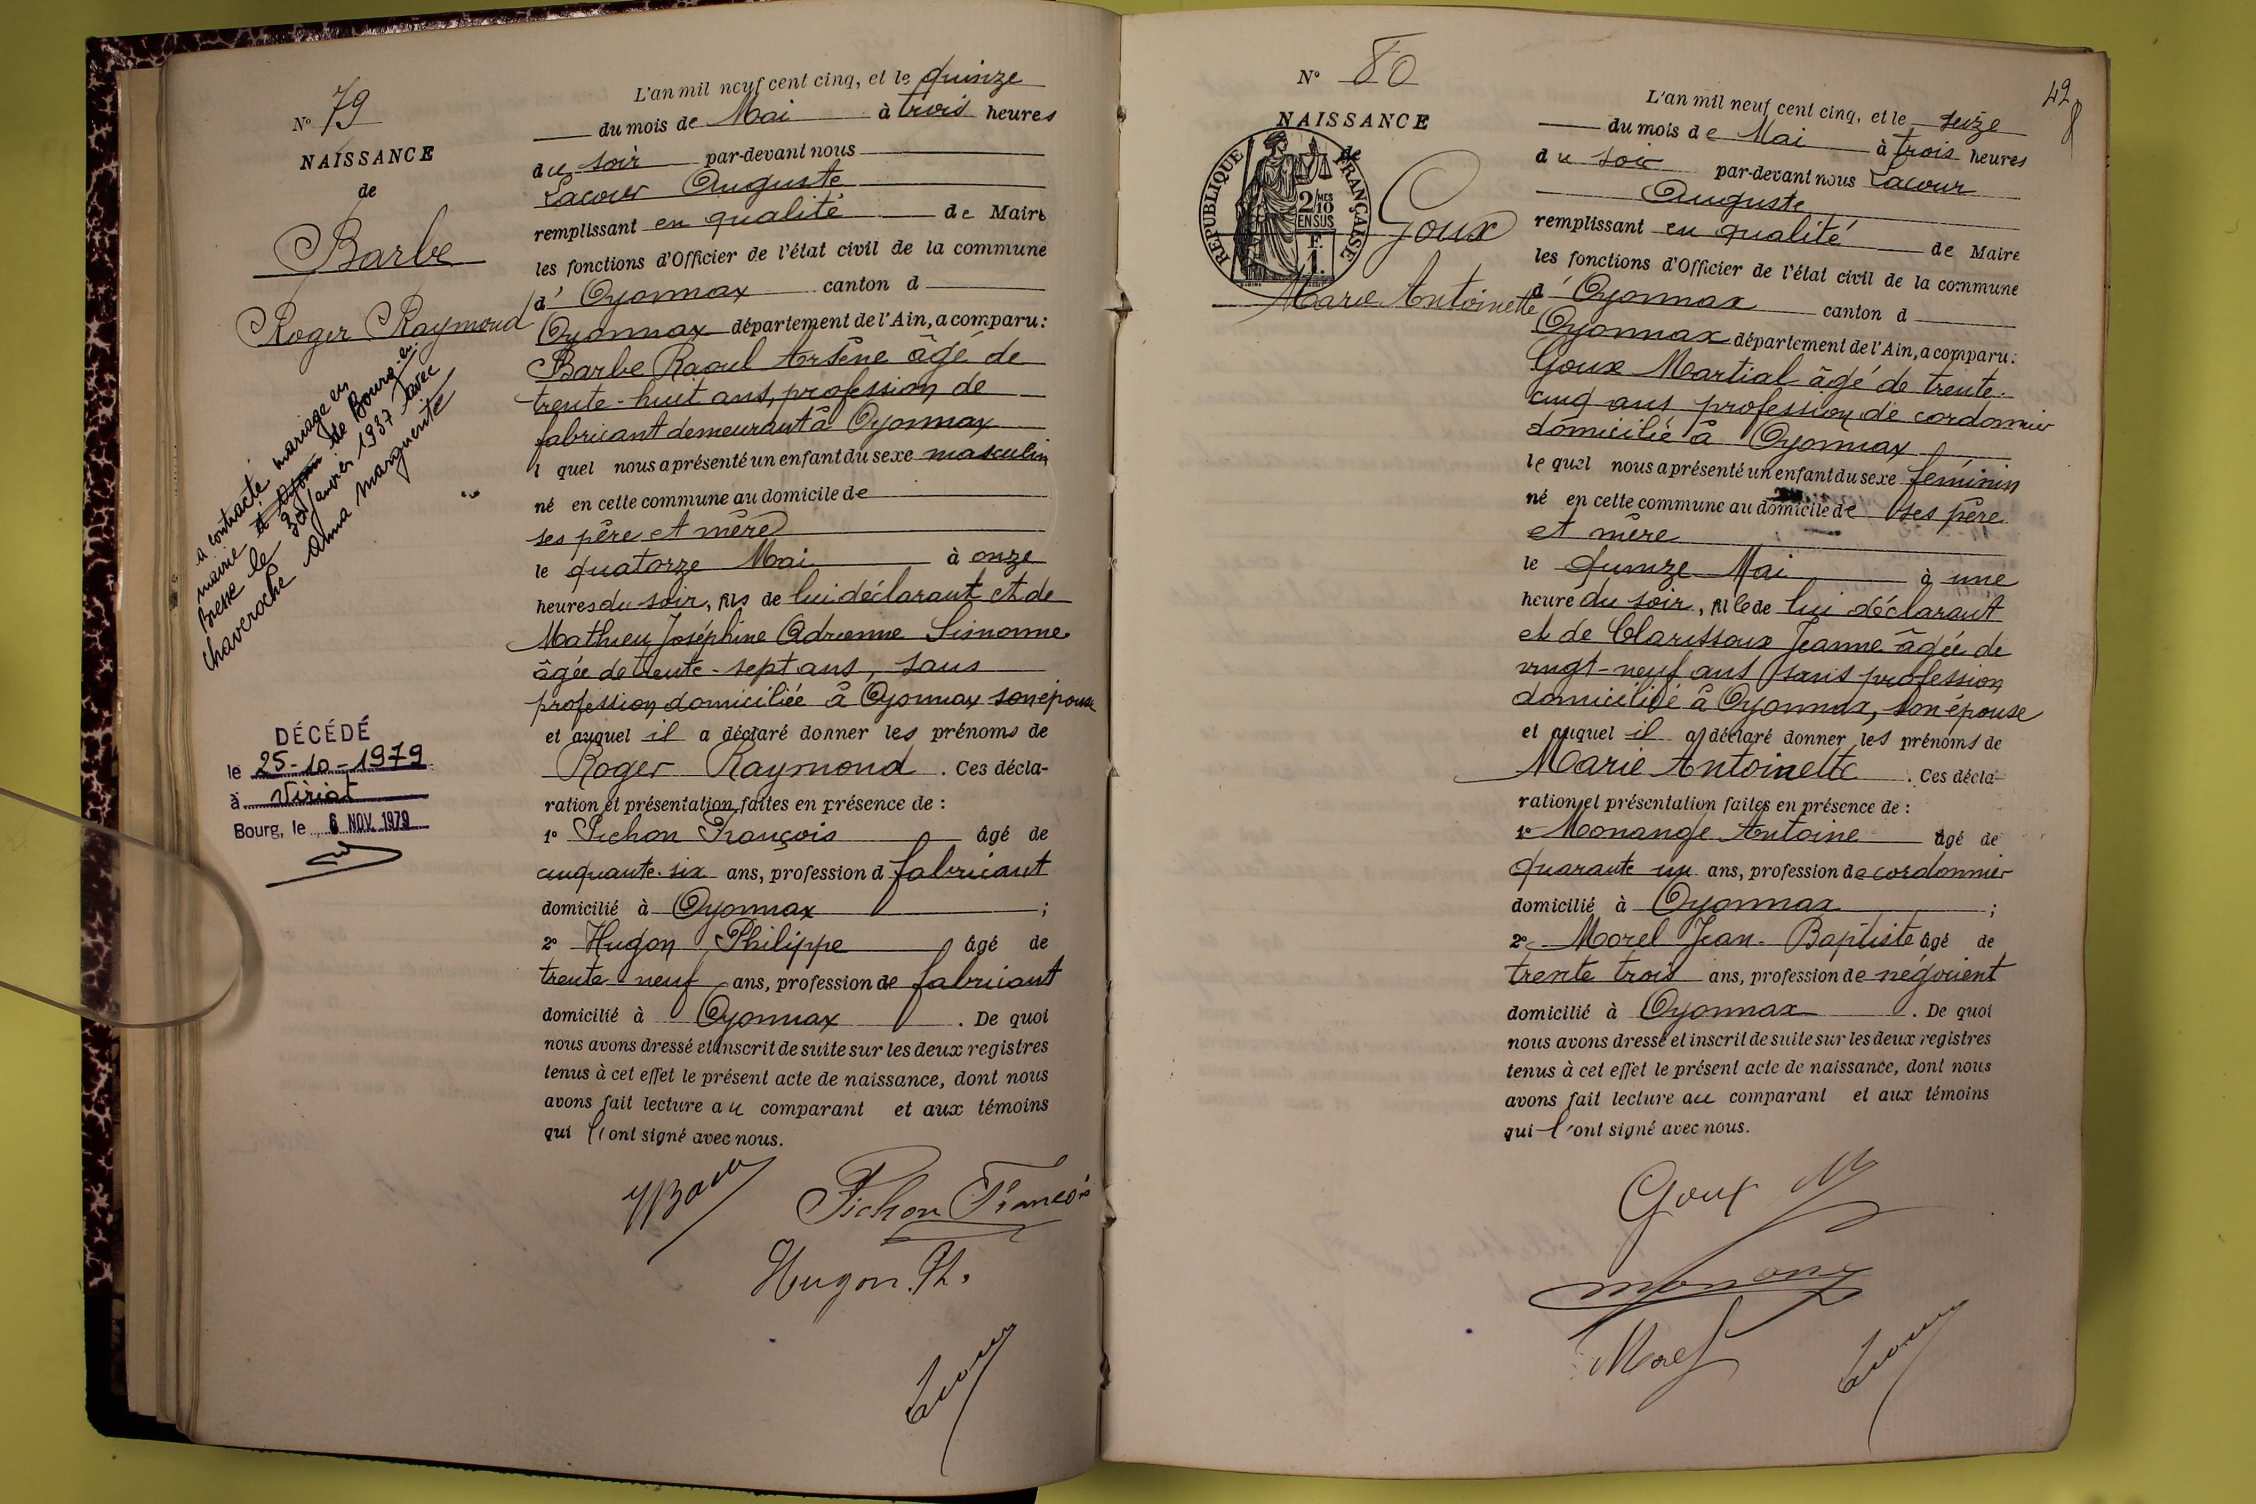 N° 79
NAISSANCE
de
Barbe
Roger Raymond
a contracté mariage en
mairie de Bourg-en-
Bresse le 30 Janvier 1937 avec
Chaveroche Anna Marguerite
DÉCÉDÉ
le 25-10-1979
à Viriat
Bourg, le 6 NOV. 1979
L'an mil neuf cent cinq, et le quinze
du mois de Mai à trois heures
du soir par-devant nous
Lacour Auguste
remplissant en qualité de Maire
les fonctions d'Officier de l'état civil de la commune
d' Oyonnax canton d
Oyonnax département de l'Ain, a comparu:
Barbe Raoul Arsène âgé de
trente-huit ans, profession de
fabricant demeurant à Oyonnax
l quel nous a présenté un enfant du sexe masculin
né en cette commune au domicile de
ses père et mère
le quatorze Mai à onze
heures du soir, fils de lui déclarant et de
Mathieu Joséphine Adrienne
âgée de trente-sept ans, sans
profession domiciliée à Oyonnax son épouse
et auquel il a déclaré donner les prénoms de
Roger Raymond. Ces décla-
ration et présentation faites en présence de :
1° Pichon François âgé de
cinquante-six ans, profession d fabricant
domicilié à Oyonnax ;
2° Hugon Philippe âgé de
trente neuf ans, profession de fabricant
domicilié à Oyonnax. De quoi
nous avons dressé et inscrit de suite sur les deux registres
tenus à cet effet le présent acte de naissance, dont nous
avons fait lecture au comparant et aux témoins
qui l'ont signé avec nous.
Pichon François
Hugon. Ph.
42
N° 80
NAISSANCE
de
RÉPUBLIQUE FRANÇAISE
2/10 MES
EN SUS
F.
1.
Goux
Marie Antoinette
L'an mil neuf cent cinq, et le seize
du mois de Mai à trois heures
du soir par-devant nous Lacour
Auguste
remplissant en qualité de Maire
les fonctions d'Officier de l'état civil de la commune
d' Oyonnax canton d
Oyonnax département de l'Ain, a comparu:
Goux Martial âgé de trente-
cinq ans profession de cordonnier
domicilié à Oyonnax
le quel nous a présenté un enfant du sexe féminin
né en cette commune au domicile de ses père
et mère
le quinze Mai à une
heure du soir, fille de lui déclarant
et de Clarissoux Jeanne âgée de
vingt-neuf ans sans profession
domiciliée à Oyonnax, son épouse
et auquel il a déclaré donner les prénoms de
Marie Antoinette. Ces décla-
ration et présentation faites en présence de :
1° Monange Antoine âgé de
quarante un ans, profession de cordonnier
domicilié à Oyonnax ;
2° Morel Jean-Baptiste âgé de
trente trois ans, profession de négociant
domicilié à Oyonnax. De quoi
nous avons dressé et inscrit de suite sur les deux registres
tenus à cet effet le présent acte de naissance, dont nous
avons fait lecture au comparant et aux témoins
qui l'ont signé avec nous.
Goux M
Morel